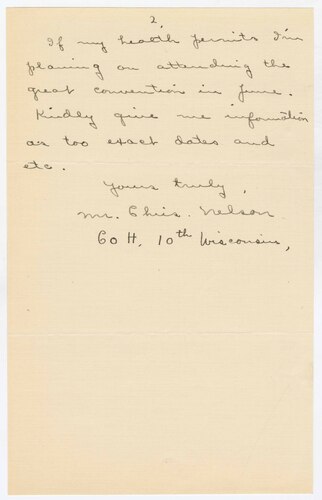 2.
If my health permits I'm
planing on attending the
great convention in June.
Kindly give me information
as too exact dates and
etc.
Yours truly,
Mr. Chris. Nelson
Co H, 10th Wisconsin,